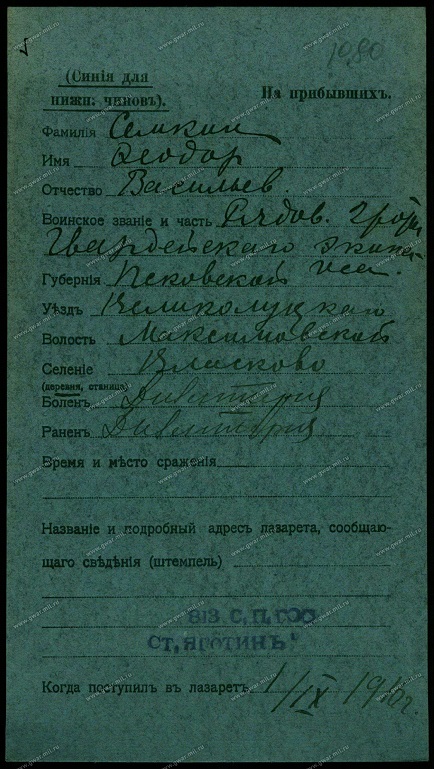 1980
(Синія для
нижн. чиновъ).
На прибывшихъ.
Фамилія Семкин
Имя Ѳеодор
Отчество Васильев.
Воинское званіе и часть Рядов. 2 роты
Гвардейскаго экипа-
Губернія Псковской жа.
Уѣздъ Великолуцкаго
Волость Максимовской
Селеніе Власково
(деревня, станица)
Боленъ Дизентерия
Раненъ Дизентерия
Время и мѣсто сраженія
Названіе и подробный адресъ лазарета, сообщаю-
щаго свѣдѣнія (штемпель)
813 С. П. ГОС
СТ. ЯГОТИНЪ"
Когда поступил въ лазаретъ 1/IX 1916 г.
www.gwar.mil.ru